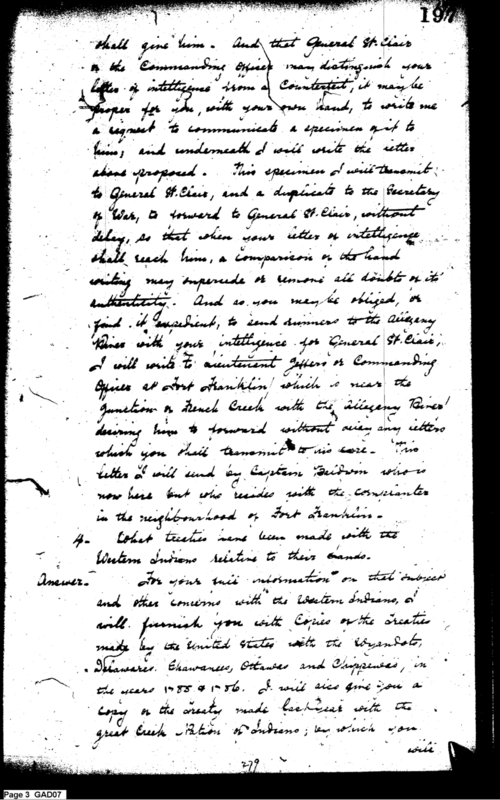 197
shall give him. And that General St. Clair
or the Commanding Officer may distinguish your
letter of intelligence from a Counterfeit, it may be
proper for you, with your own hand, to write me
a request to communicate a specimen of it to
him; and underneath I will write the letter
above proposed. This specimen I will transmit
to General St. Clair, and a duplicate to the Secretary
of War, to forward to General St. Clair, without
delay, so that when your letter of intelligence
shall reach him, a comparison of the hand
writing may supersede or remove all doubts of its
authenticity. And as you may be obliged, or
find it expedient, to send runners to the Allegany
River with your intelligence for General St. Clair,
I will write to Lieutenant Jeffers or Commanding
Officer at Fort Franklin which is near the
Junction of French Creek with the Allegany River
desiring him to forward without delay any letters
which you shall transmit to his care. This
letter I will send by Captain Baldwin who is
now here but who resides with the Complanter
in the neighbourhood of Fort Franklin.
4. What treaties have been made with the
Western Indians relative to their lands.
Answer. For your full information on that subject
and other concerns with the Western Indians, I
will furnish you with Copies of the Treaties
made by the United States with the Wyandots,
Delawares, Shawanees, Ottawas and Chippewas, in
the years 1785 & 1786. I will also give you a
Copy of the Treaty made last year with the
great Creek Nation of Indians; by which you
will
279
Page 3 GAD07